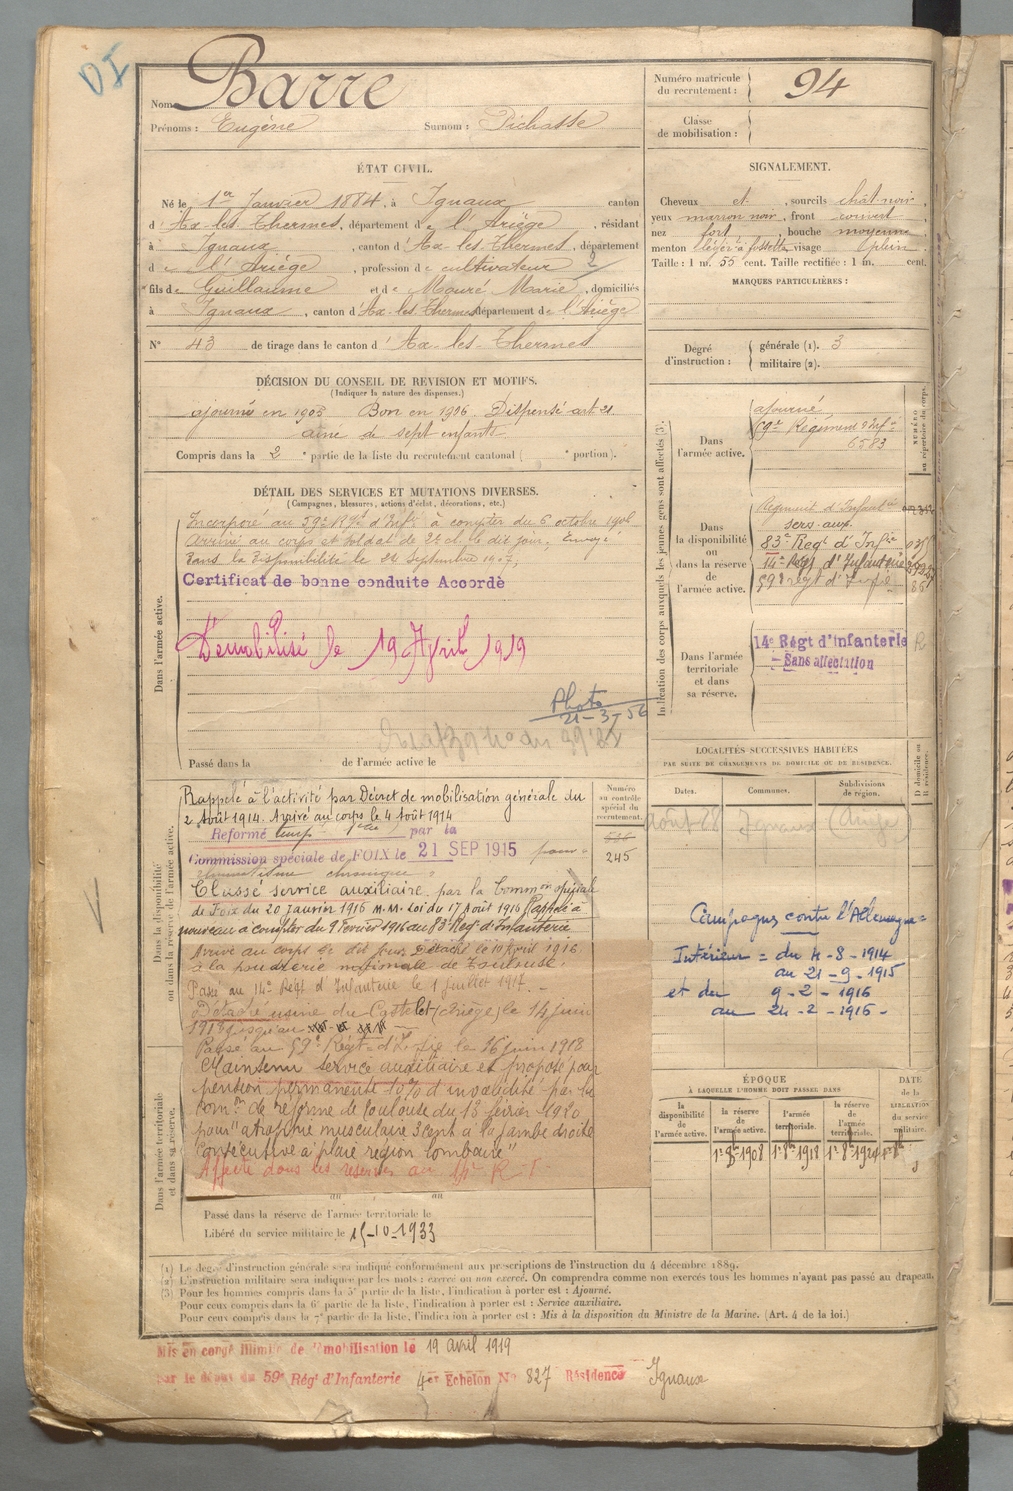 Nom Barre
Prénoms : Eugène Surnom : Pichasse
Numéro matricule du recrutement : 94
Classe de mobilisation :
ÉTAT CIVIL.
Né le 1er Janvier 1884, à Ignaux canton
d'Ax-les-Thermes, département de l'Ariège, résidant
à Ignaux, canton d'Ax-les-Thermes, département
de l'Ariège, profession de cultivateur 2
fils de Guillaume et de Mouré Marie, domiciliés
à Ignaux, canton d'Ax-les-Thermes département de l'Ariège
N° 43 de tirage dans le canton d'Ax-les-Thermes
SIGNALEMENT.
Cheveux et , sourcils chât-noir,
yeux marron noir, front couvert
nez fort, bouche moyenne,
menton à fossette, visage plein
Taille : 1 m. 55 cent. Taille rectifiée : 1 m. cent.
MARQUES PARTICULIÈRES :
Degré d'instruction : générale (1). 3
militaire (2).
DÉCISION DU CONSEIL DE REVISION ET MOTIFS.
(Indiquer la nature des dispenses.)
ajourné en 1905 Bon en 1906 Dispensé art 21
ainé de sept enfants
Compris dans la 2e partie de la liste du recrutement cantonal ( e portion).
DÉTAIL DES SERVICES ET MUTATIONS DIVERSES.
(Campagnes, blessures, actions d'éclat, décorations, etc.)
Dans l'armée active.
Incorporé au 59e Rgt d'Infie à compter du 6 octobre 1906
Arrivé au corps et soldat de 2e cl. le dit jour. Envoyé
dans la disponibilité le 21 Septembre 1907,
Certificat de bonne conduite Accordé
Démobilisé le 19 Avril 1919
Photo
21-3-56
Passé dans la de l'armée active le
Indication des corps auxquels les jeunes gens sont affectés (3).
NUMÉRO au répertoire du corps.
Dans l'armée active.
ajourné
59e Régiment d'Infie
6583
Dans la disponibilité ou dans la réserve de l'armée active.
Régiment d'Infanterie
serv. aux.
83e Regt d'Infie
14e Régt d'Infanterie
59e régt d'Infie
Dans l'armée territoriale et dans sa réserve.
14e Régt d'Infanterie
Sans affectation
LOCALITÉS SUCCESSIVES HABITÉES
PAR SUITE DE CHANGEMENTS DE DOMICILE OU DE RÉSIDENCE.
Dates. Communes. Subdivisions de région. D domicile ou R résidence.
Ignaux
Dans la disponibilité ou dans la réserve de l'armée active.
Numéro au contrôle spécial du recrutement.
245
Rappelé à l'activité par Décret de mobilisation générale du
2 Août 1914. Arrivé au corps le 4 Août 1914
Réformé temp. par la
Commission spéciale de FOIX le 21 SEP 1915 pour
rhumatisme chronique.
Classé service auxiliaire par la Common spéciale
de Foix du 20 Janvier 1916 M.M. Loi du 17 Août 1915 Rappelé à
nouveau à compter du 9 Février 1916 au 83e Regt d'Infanterie
Arrivé au corps le dit jour. Détaché le 10 Avril 1916
à la poudrerie nationale de Toulouse.
Passé au 14e Régt d'Infanterie le 1 juillet 1917.
Détaché usine du Castelet (Ariège) le 14 juin
1918
Passé au 59e Régt d'Infie le 16 juin 1918
Maintenu service auxiliaire et proposé pour
pension permanente 10% d'invalidité par la
Comon de réforme de Toulouse du 13 février 1920
pour "atrophie musculaire 3 cent à la jambe droite
consécutive à plaie région lombaire"
Affecté dans les réserves au 14e R.I.
Campagnes contre l'Allemagne =
Intérieur = du 4-8-1914
au 21-9-1915
et du 9-2-1916
au 24-2-1916-
ÉPOQUE
À LAQUELLE L'HOMME DOIT PASSER DANS
la disponibilité de l'armée active. la réserve de l'armée active. l'armée territoriale. la réserve de l'armée territoriale.
DATE de la LIBÉRATION du service militaire.
1er 8bre 1908 1er 8bre 1918 1er 8bre 1924
Dans l'armée territoriale et dans sa réserve.
au au
Passé dans la réserve de l'armée territoriale le
Libéré du service militaire le 15-10-1933
(1) Le degré d'instruction générale sera indiqué conformément aux prescriptions de l'instruction du 4 décembre 1889.
(2) L'instruction militaire sera indiquée par les mots : exercé ou non exercé. On comprendra comme non exercés tous les hommes n'ayant pas passé au drapeau.
(3) Pour les hommes compris dans la 5e partie de la liste, l'indication à porter est : Ajourné.
Pour ceux compris dans la 6e partie de la liste, l'indication à porter est : Service auxiliaire.
Pour ceux compris dans la 7e partie de la liste, l'indication à porter est : Mis à la disposition du Ministre de la Marine. (Art. 4 de la loi.)
Mis en congé illimité de démobilisation le 19 avril 1919
par le dépôt du 59e Régt d'Infanterie 4er Echelon No 827 Résidence Ignaux